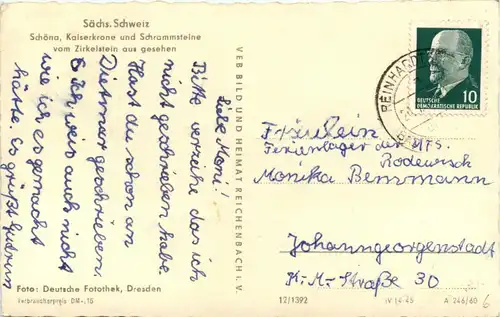 Sächs. Schweiz
Schöna, Kaiserkrone und Schrammsteine
vom Zirkelstein aus gesehen
Liebe Moni!
Bitte verzeihe das ich
nicht geschrieben habe.
Hast du schon an
Dietmar geschrieben.
Ich weis auch nicht
wie ich es gemacht
hätte. Es grüßt Gudrun
Foto: Deutsche Fotothek, Dresden
Verbraucherpreis DM -,15
VEB BILD UND HEIMAT REICHENBACH i. V.
REINHARD
10
DEUTSCHE
DEMOKRATISCHE REPUBLIK
Fräulein
Ferienlager des MFS.
Rodewisch
Monika Bemmann
Johanngeorgenstadt
K.-M.-Straße 30
12/1392
IV-14-45
A 246/60
6